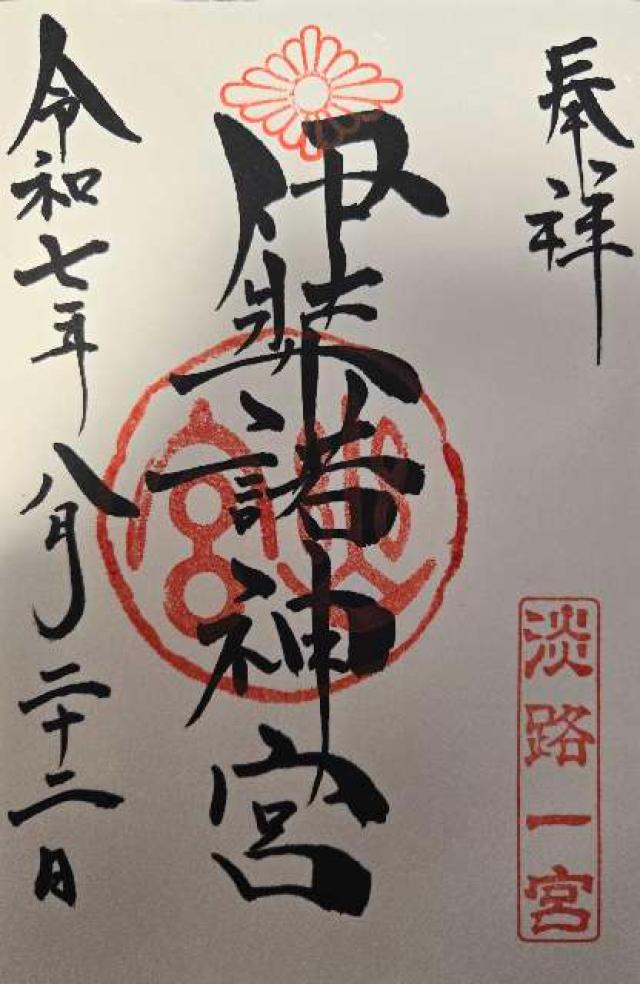 奉祥
淡路一宮
伊弉諾神宮
令和七年八月二十二日